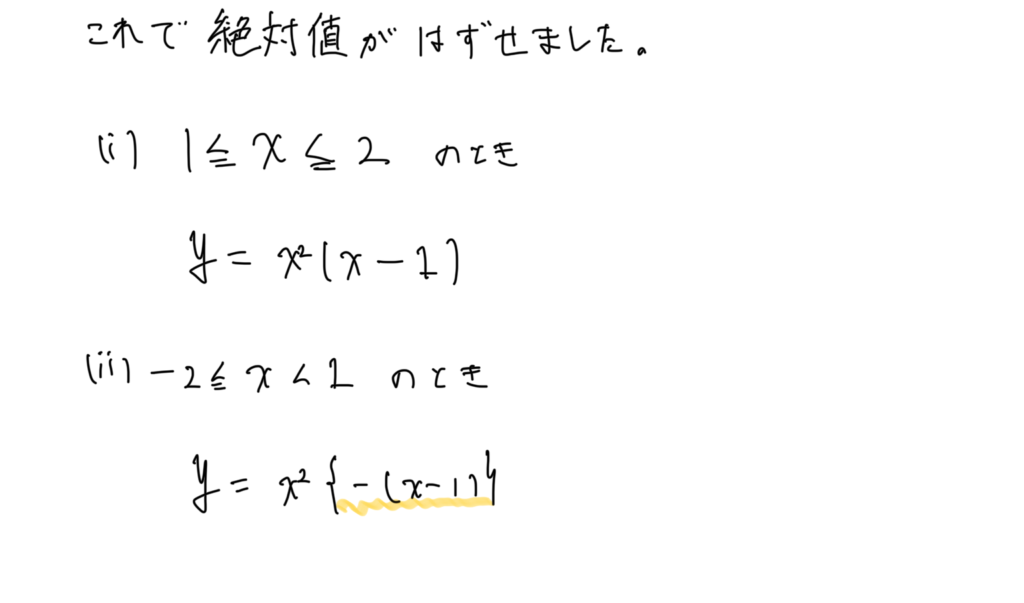 これで絶対値がはずせました。
(i) 1 ≦ x ≦ 2 のとき
y = x²(x − 1)
(ii) −2 ≦ x < 1 のとき
y = x²{−(x−1)}